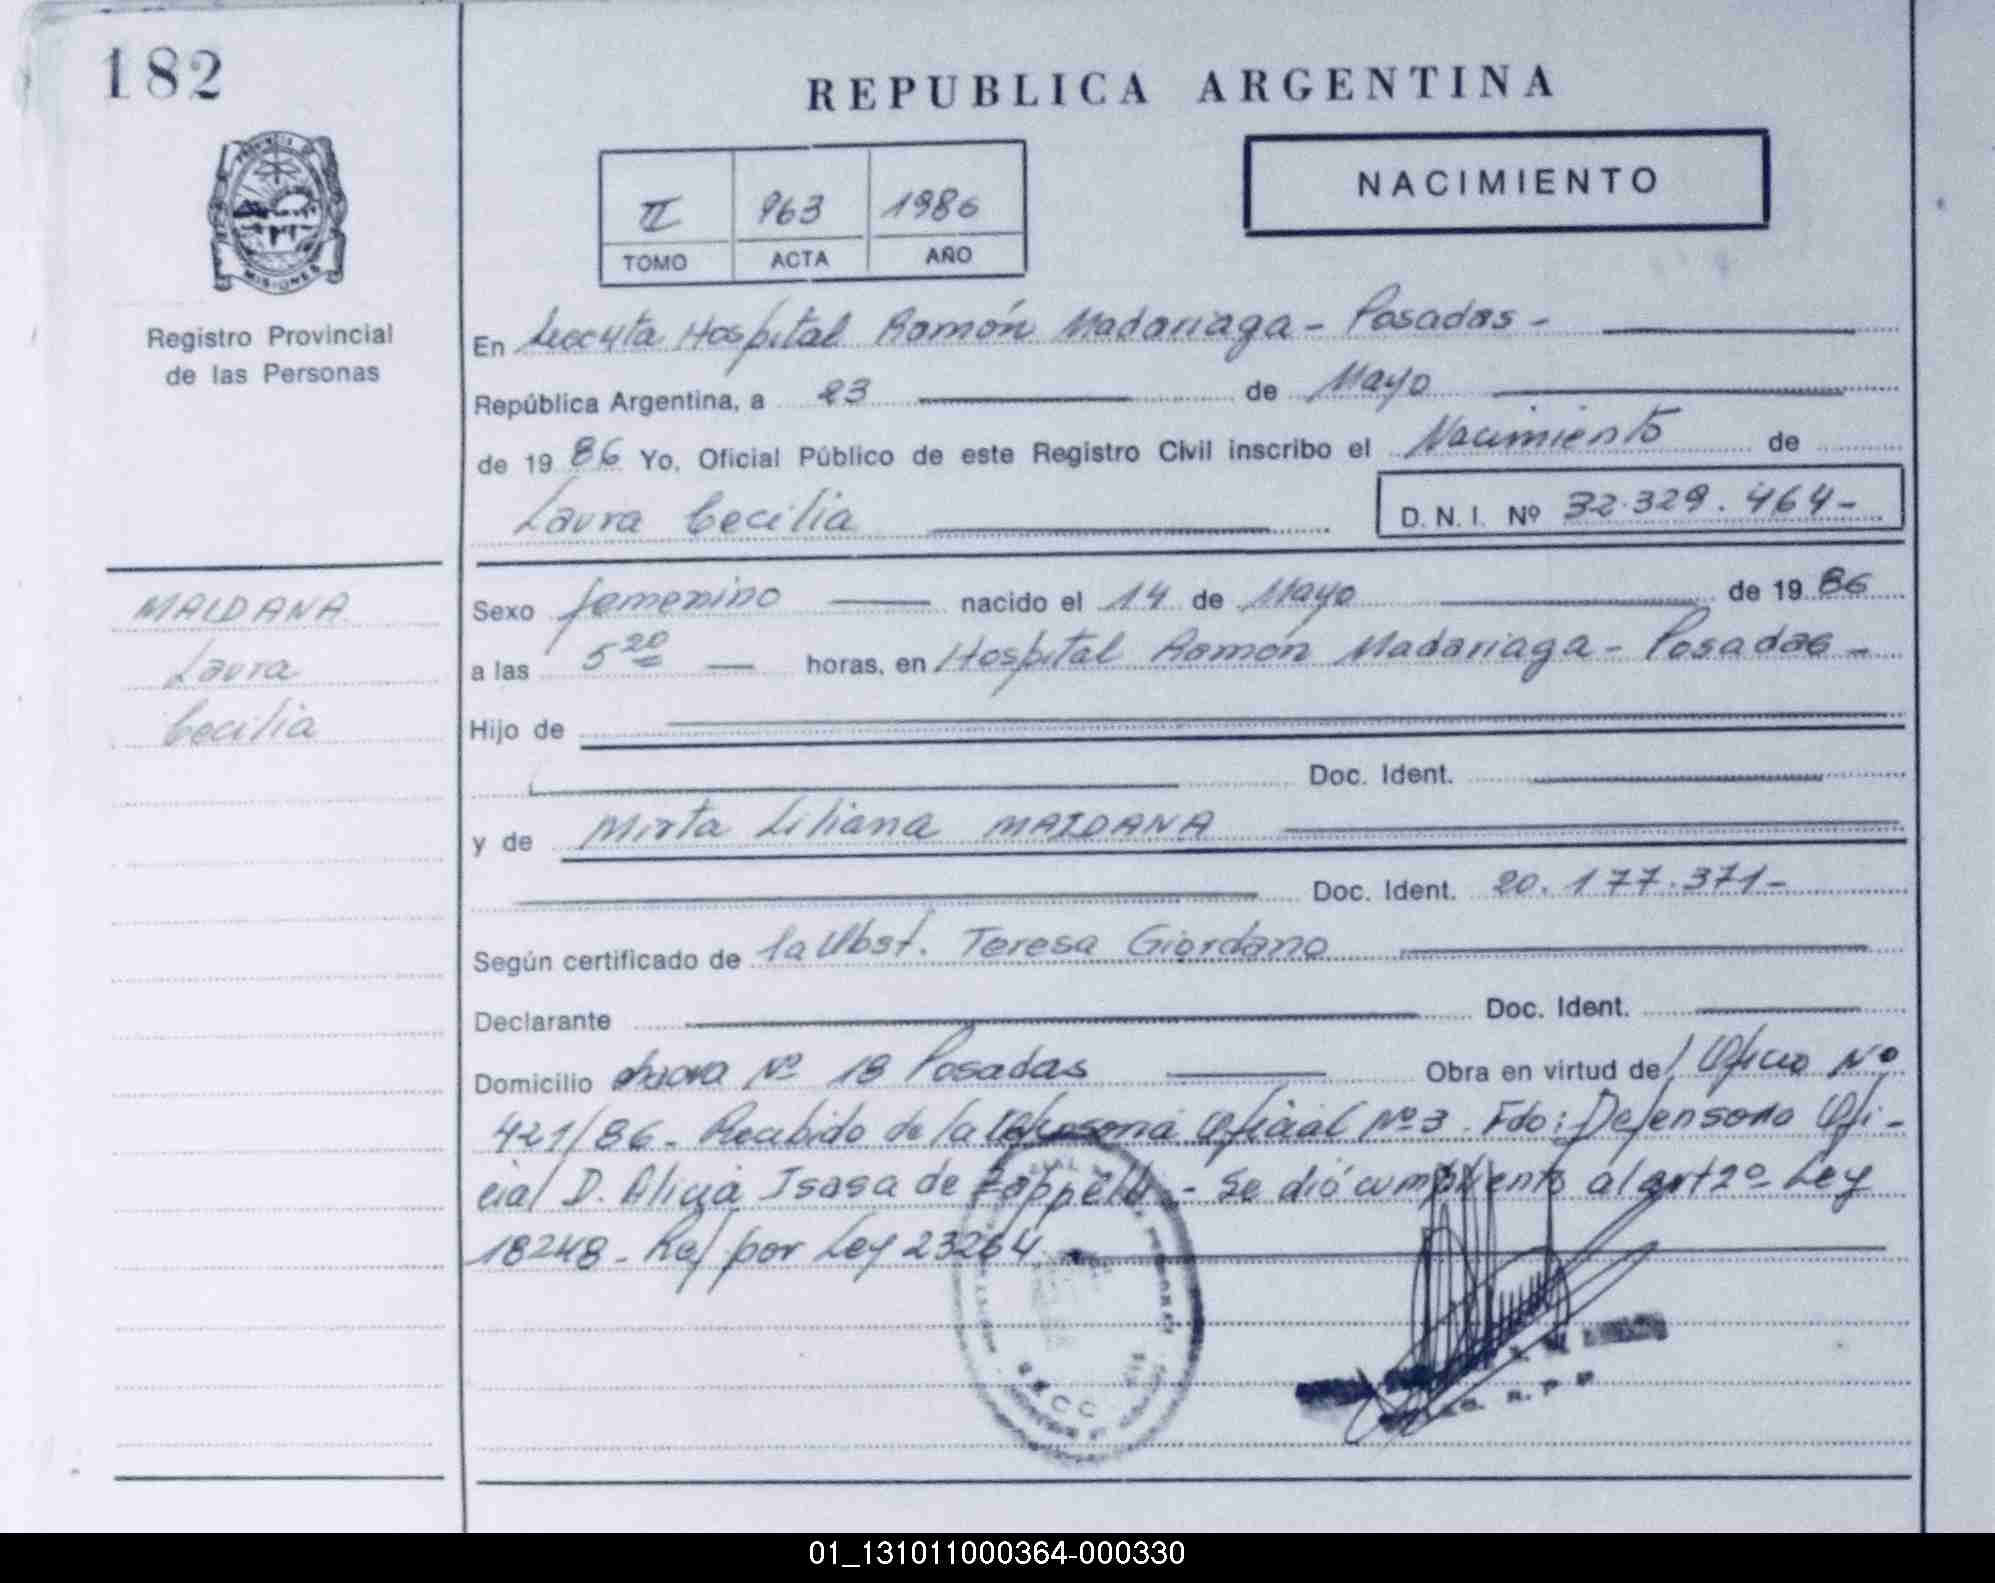 182
REPUBLICA ARGENTINA
NACIMIENTO
II 963 1986
TOMO ACTA AÑO
PROVINCIA DE MISIONES
Registro Provincial
de las Personas
En Hospital Ramón Madariaga - Posadas -
República Argentina, a 23 de Mayo
de 1986 Yo, Oficial Público de este Registro Civil inscribo el Nacimiento de
Laura Cecilia D. N. I. Nº 32.329.464-
MAIDANA
Laura
Cecilia
Sexo femenino nacido el 14 de Mayo de 1986
a las 5 20 horas, en Hospital Ramón Madariaga - Posadas -
Hijo de
Doc. Ident.
y de Mirta Liliana MAIDANA
Doc. Ident. 20.177.371-
Según certificado de la Obst. Teresa Giordano
Declarante Doc. Ident.
Domicilio Nº 18 Posadas Obra en virtud de Oficio Nº
421/86 - Recibido de la Oficial Nº 3. Fdo: Defensora Ofi-
cial D. Alicia Isasa de - Se dió cumplimento al art 2º Ley
18248 - Ref por Ley 23264
R. P. P.
01_131011000364-000330